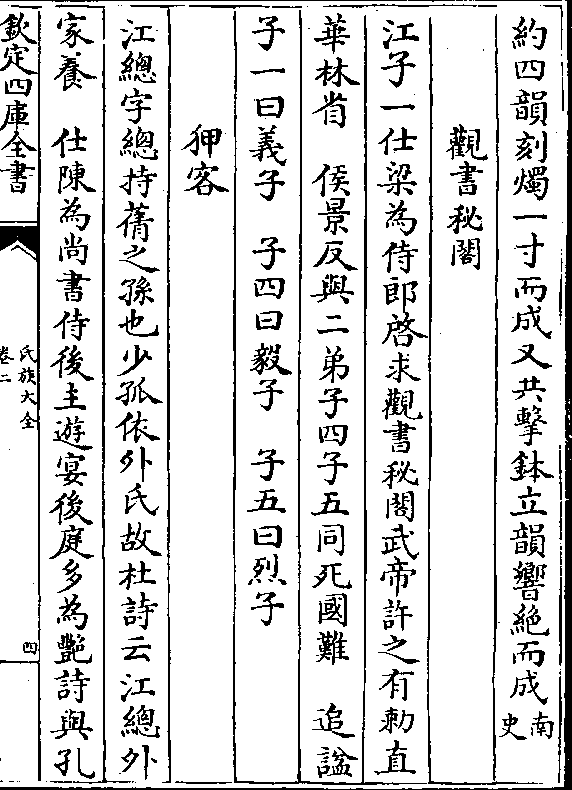 約四韻刻燭一寸而成又共擊鉢立韻響絶而成南史
觀書秘閣
江子一仕梁為侍郎啓求觀書秘閣武帝許之有勅直
華林省　侯景反與二弟子四子五同死國難　追謚
子一曰義子　子四曰毅子　子五曰烈子
狎客
江總字總持蒨之孫也少孤依外氏故杜詩云江總外
家養　仕陳為尚書侍後主遊宴後庭多為艷詩與孔
欽定四庫全書
氏族大全
卷二
四